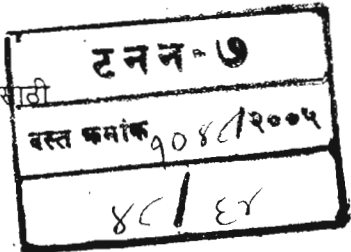 टनन-७
साठी
दस्त क्रमांक १०४८/२००५
४८/६४